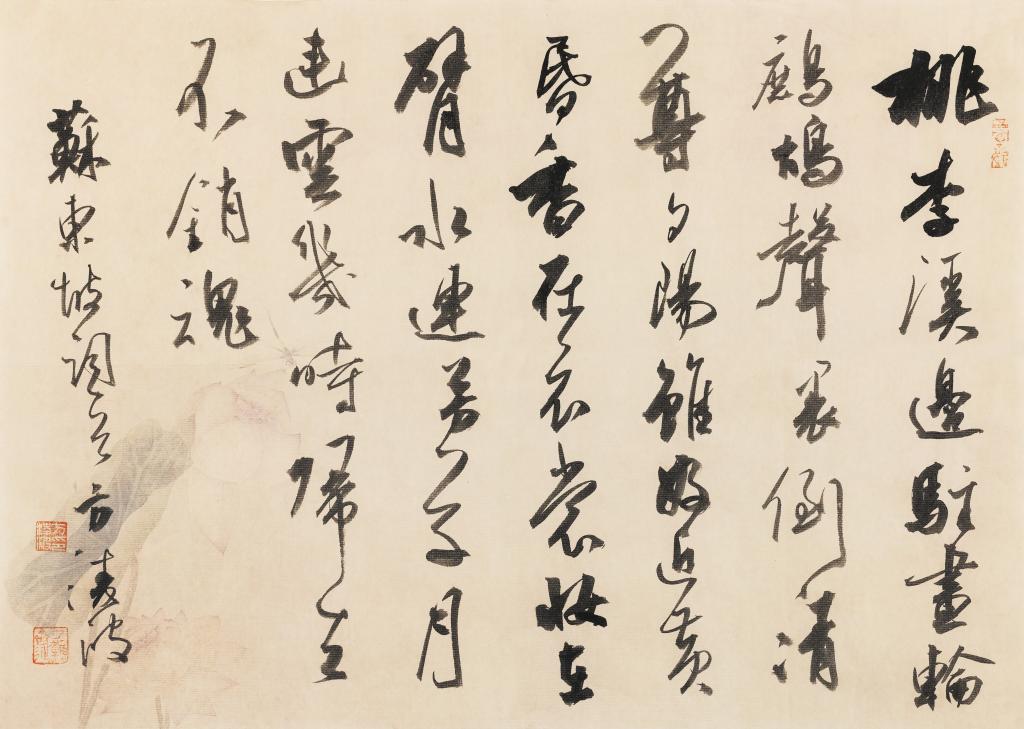 桃李溪邊駐畫輪
鷓鴣聲裏倒清
尊夕陽雖好近黃
昏香在衣裳妝在
臂水連芳草月
連雲幾時歸去
不銷魂
蘇東坡詞 方凌波